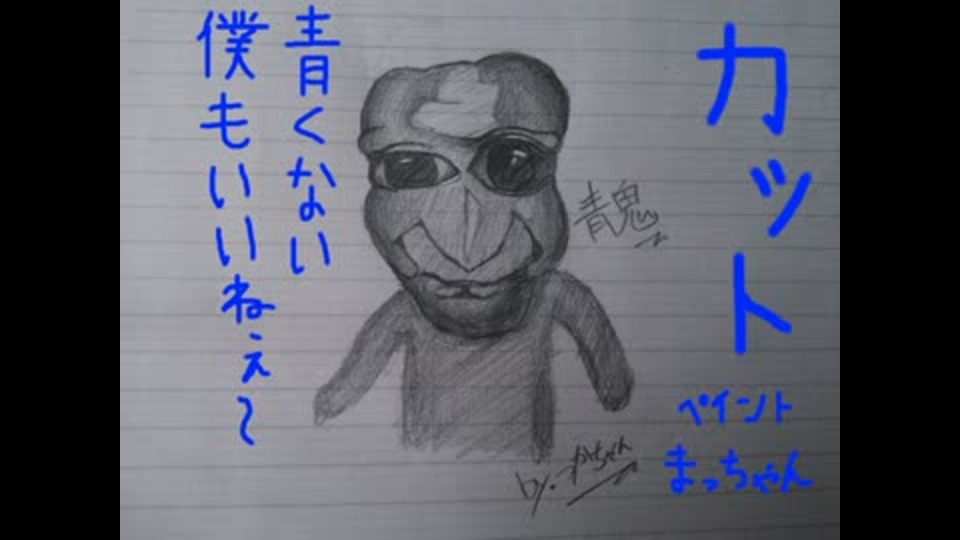 カット
ペイント
まっちゃん
青くない
僕もいいねぇ～
青鬼
by.かちゃん